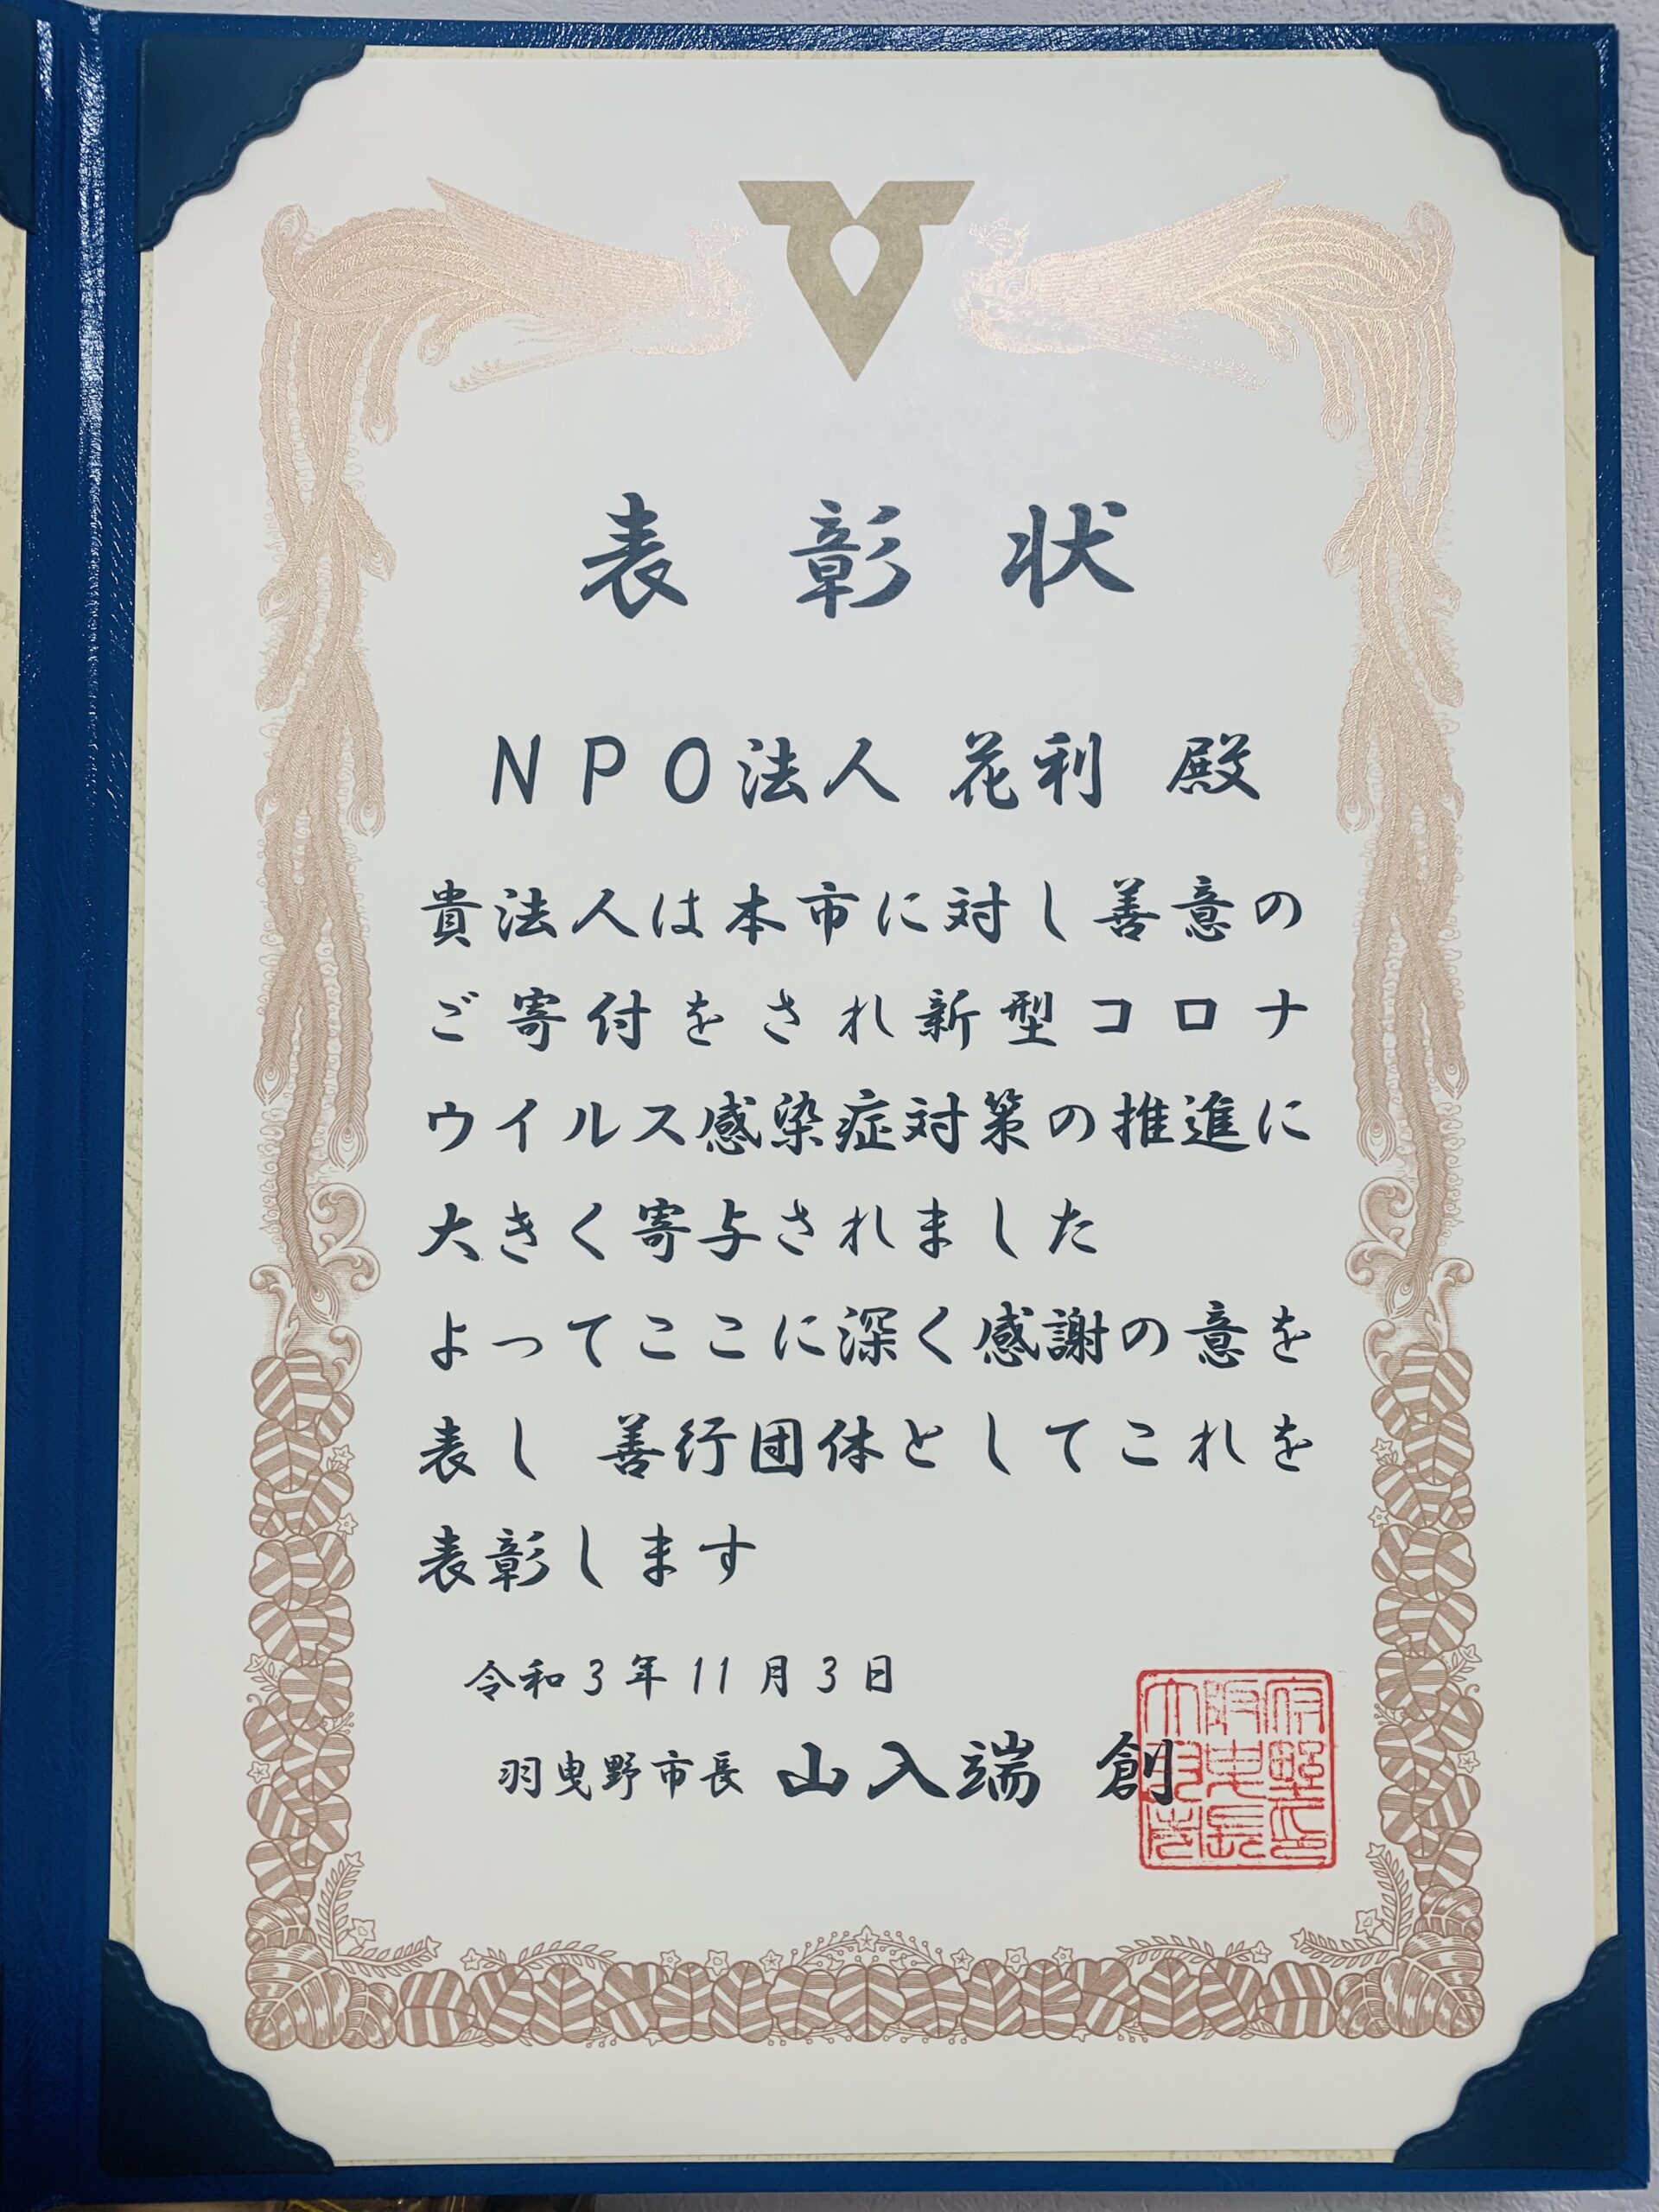 表彰状
NPO法人 花利 殿
貴法人は本市に対し善意の
ご寄付をされ新型コロナ
ウイルス感染症対策の推進に
大きく寄与されました
よってここに深く感謝の意を
表し 善行団体としてこれを
表彰します
令和3年11月3日
羽曳野市長 山入端 創
大阪府
羽曳野
市長印